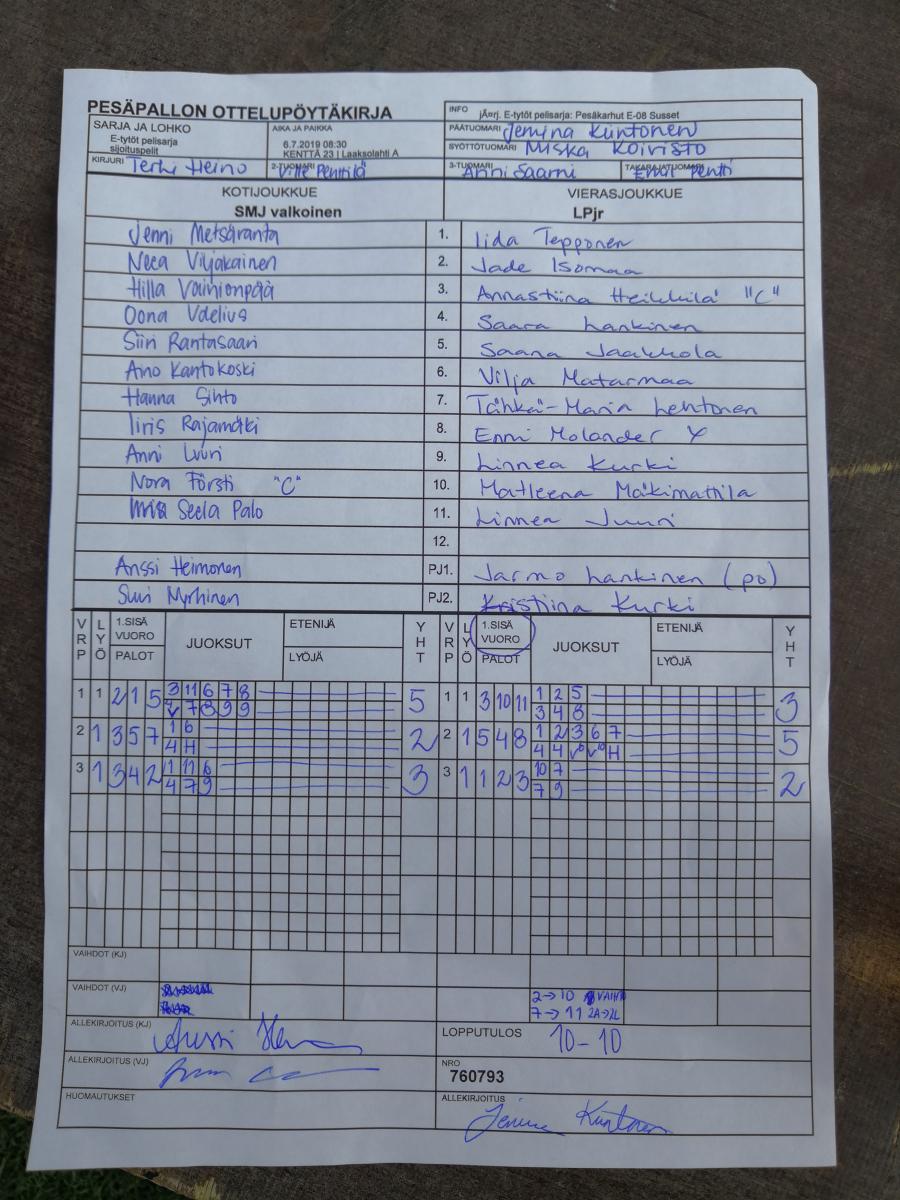 PESÄPALLON OTTELUPÖYTÄKIRJA
INFO jÃ¤rj. E-tytöt pelisarja: Pesäkarhut E-08 Susset
SARJA JA LOHKO
E-tytöt pelisarja
sijoituspelit
AIKA JA PAIKKA
6.7.2019 08:30
KENTTÄ 23 | Laaksolahti A
PÄÄTUOMARI Jemina Kuntonen
SYÖTTÖTUOMARI Miska Koivisto
KIRJURI Terhi Heino
2-TUOMARI Ville Penttilä
3-TUOMARI Anni Saarni
TAKARAJATUOMARI Emil Pentti
KOTIJOUKKUE VIERASJOUKKUE
SMJ valkoinen LPjr
Jenni Metsäranta 1. Iida Tepponen
Neea Viljakainen 2. Jade Isomaa
Hilla Vainionpää 3. Annastiina Heikkilä "C"
Oona Udelius 4. Saara Lankinen
Siiri Rantasaari 5. Saana Jaakkola
Aino Kantokoski 6. Vilja Matarmaa
Hanna Sihto 7. Tähkä-Maria Lehtonen
Iiris Rajamäki 8. Enni Molander
Anni Luuri 9. Linnea Kurki
Nora Försti "C" 10. Matleena Mäkimattila
Seela Palo 11. Linnea Juuri
12.
Anssi Heimonen PJ1. Jarmo Lankinen (po)
Suvi Myrhinen PJ2. Kristiina Kurki
VRP LYÖ 1.SISÄ VUORO JUOKSUT ETENIJÄ YHT VRP LYÖ 1.SISÄ VUORO JUOKSUT ETENIJÄ YHT
PALOT LYÖJÄ PALOT LYÖJÄ
1 1 2 1 5 3 11 6 7 8 5 1 1 3 10 11 1 2 5 3
7 8 9 9 3 4 8
2 1 3 5 7 1 6 2 2 1 5 4 8 1 2 3 6 7 5
4 H 4 4 H
3 1 3 4 2 1 11 6 3 3 1 1 2 3 10 7 2
4 7 9 7 9
VAIHDOT (KJ)
VAIHDOT (VJ) 2→10
7→11
ALLEKIRJOITUS (KJ) Anssi LOPPUTULOS 10-10
ALLEKIRJOITUS (VJ) NRO
760793
HUOMAUTUKSET ALLEKIRJOITUS
Jemina Kuntonen